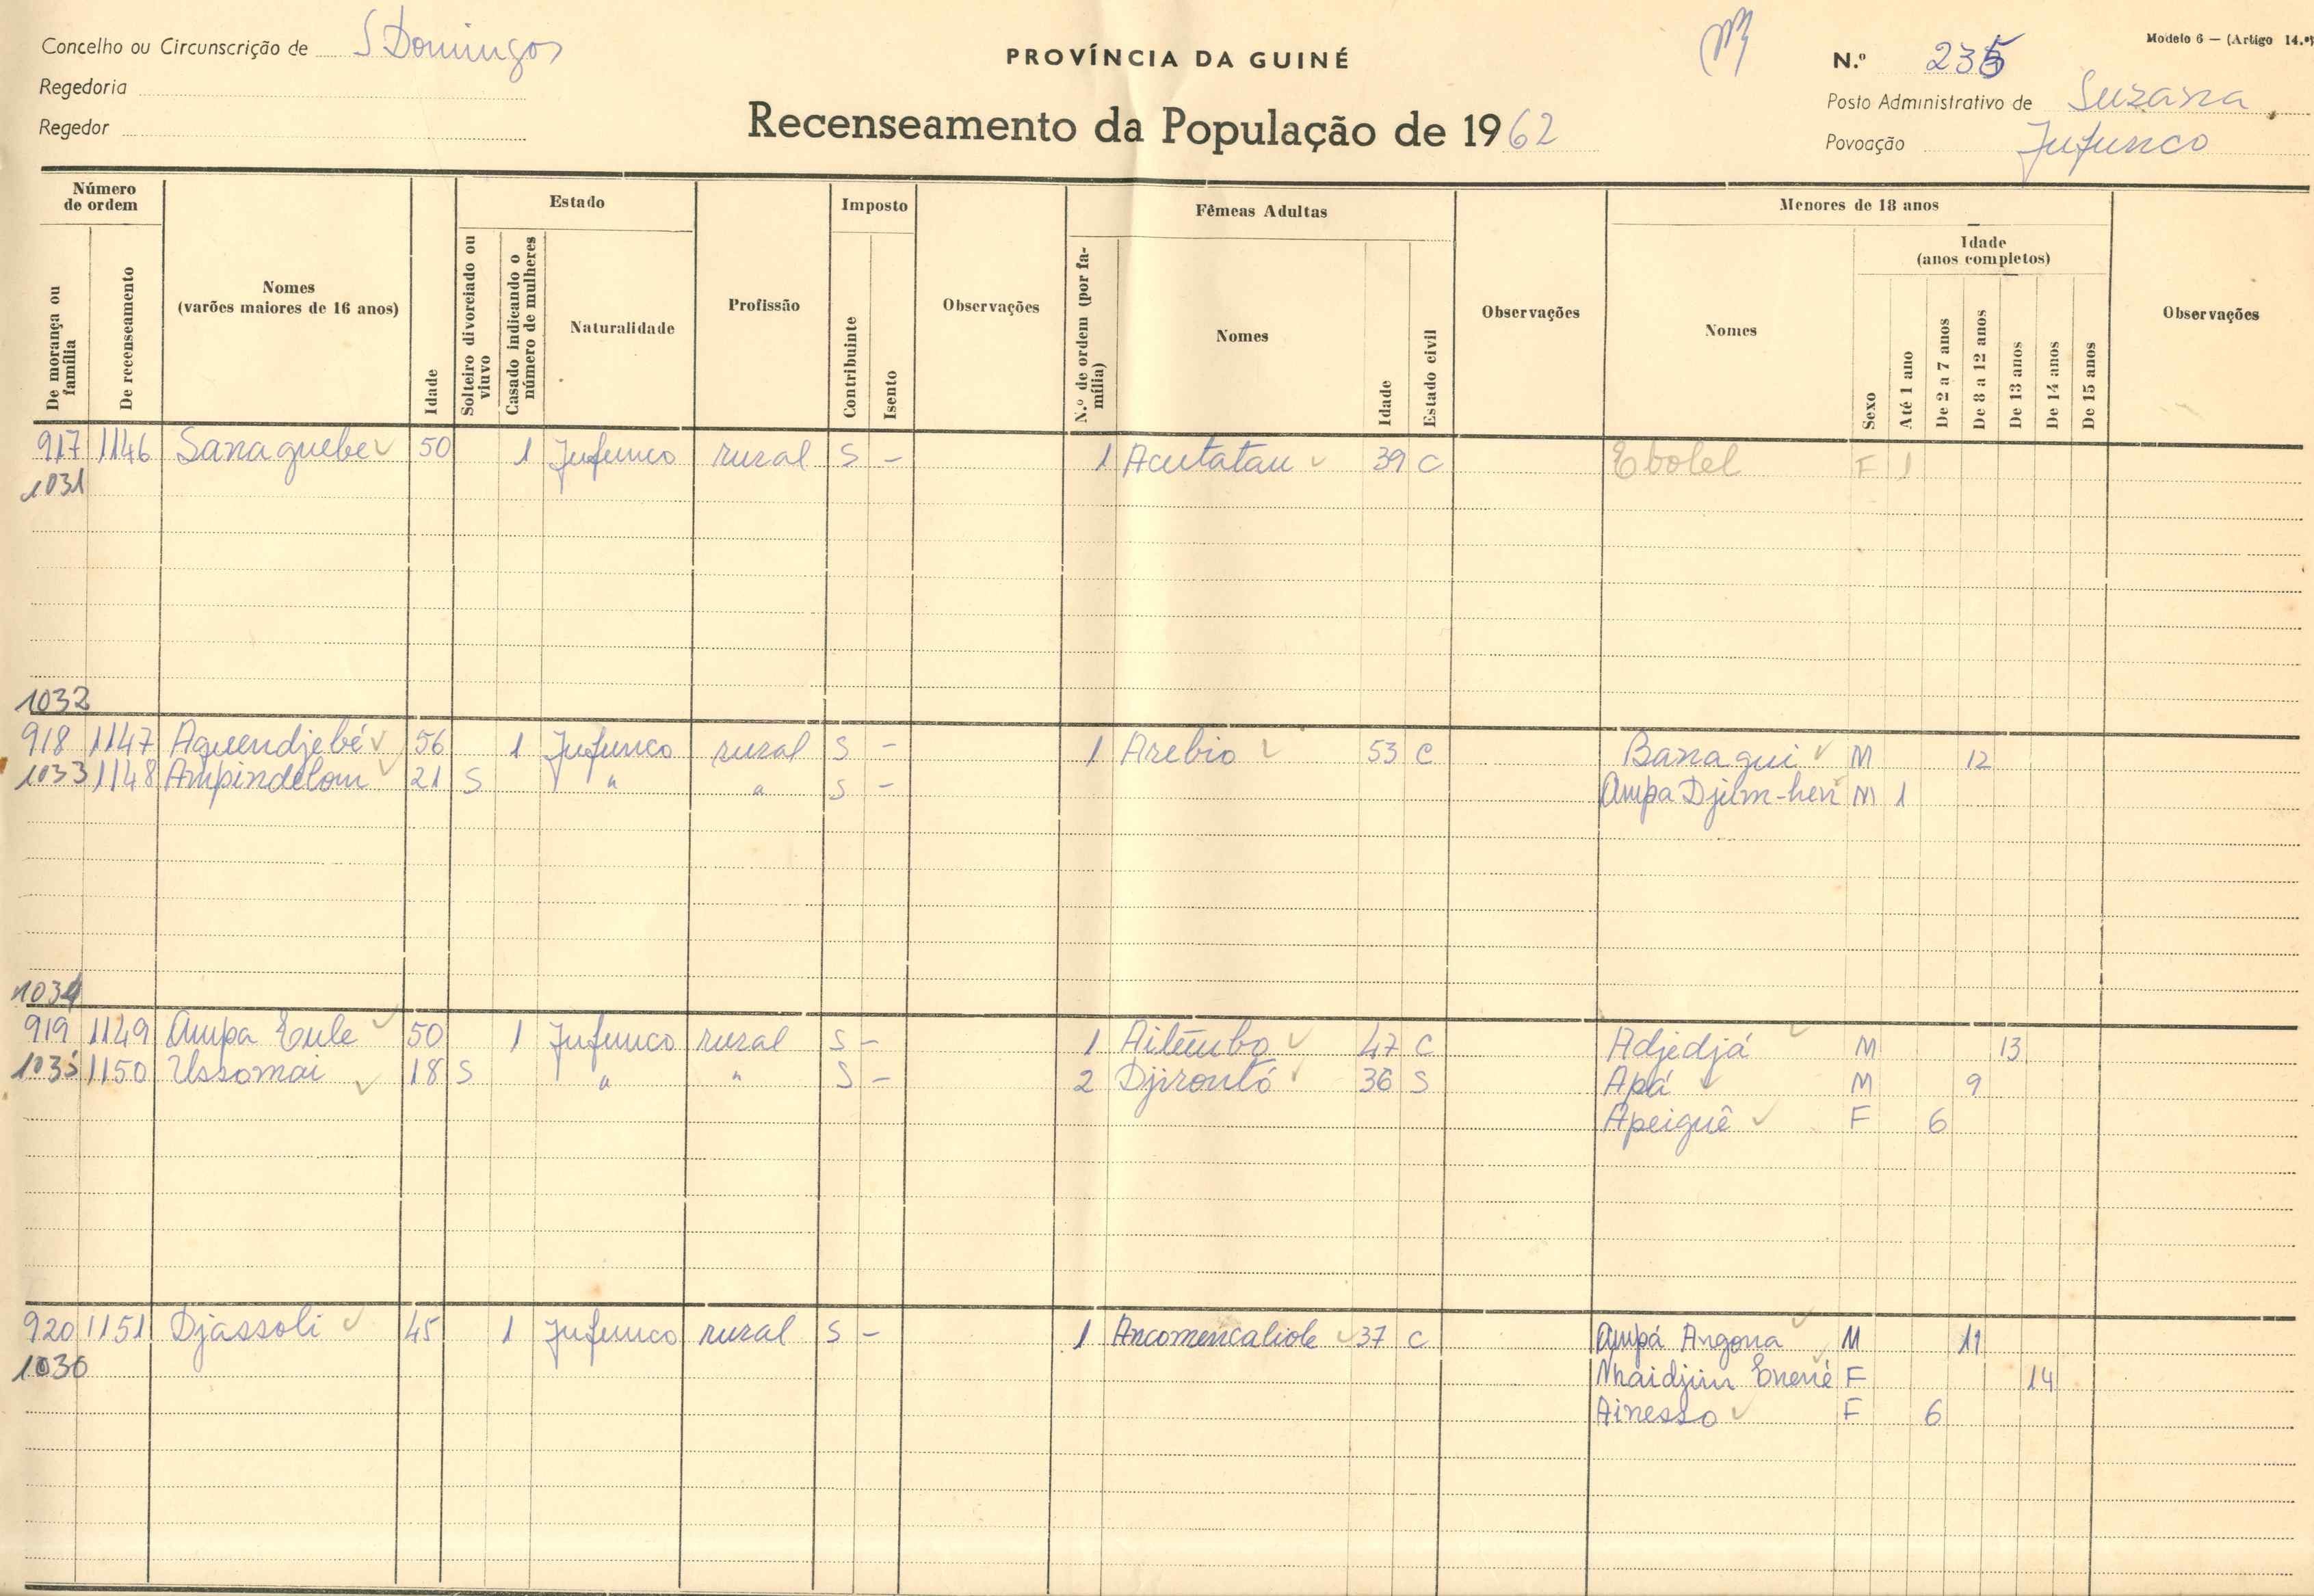 Concelho ou Circunscrição de S Domingos
Regedoria
Regedor
PROVÍNCIA DA GUINÉ
Recenseamento da População de 1962
Modelo 6 — (Artigo 14.º)
N.º 235
Posto Administrativo de Suzana
Povoação Jufunco
Número de ordem
De morança ou família
De recenseamento
Nomes
(varões maiores de 16 anos)
Idade
Estado
Solteiro divorciado ou viuvo
Casado indicando o número de mulheres
Naturalidade
Profissão
Imposto
Contribuinte
Isento
Observações
Fêmeas Adultas
N.º de ordem (por família)
Nomes
Idade
Estado civil
Observações
Menores de 18 anos
Nomes
Sexo
Idade
(anos completos)
Até 1 ano
De 2 a 7 anos
De 8 a 12 anos
De 13 anos
De 14 anos
De 15 anos
Observações
917 1146 Sanaguebe 50 1 Jufunco rural S - 1 Acutatau 39 C Ebolel F 1
1031
1032
918 1147 Aguendjebé 56 1 Jufunco rural S - 1 Arebio 53 C Banagui M 12
1033 1148 Ampindelom 21 S " " S - Ampa Djilm-hen M 1
1034
919 1149 Ampa Eule 50 1 Jufunco rural S - 1 47 C Adjedjá M 13
1035 1150 Ussomai 18 S " " S - 2 Djirontó 36 S Apá M 9
Apeiguê F 6
920 1151 Djassoli 45 1 Jufunco rural S - 1 Ancomencaliole 37 C Ampá Angona M 11
1036 Nhaidjin Enené F 14
Ainesso F 6